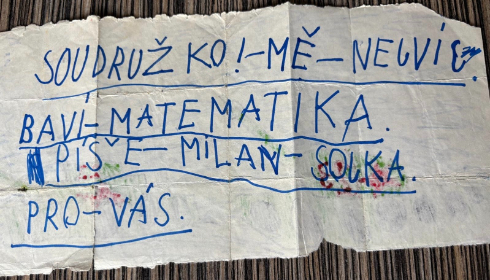 SOUDRUŽKO!-MĚ-NEJVÍC
BAVÍ-MATEMATIKA.
PÍŠE-MILAN-SOUKA.
PRO-VÁS.